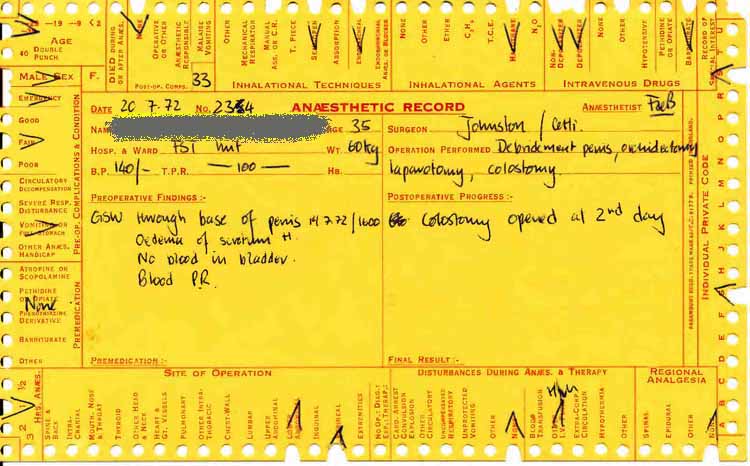 40 -19 -9 <2
AGE
DOUBLE PUNCH
MALE SEX F.
DIED DURING OR AFTER ANÆS.
NONE
OPERATIVE OR OTHER
ANÆSTHETIC RESPONSIBLE
MALAISE VOMITING
OTHER
POST-OP. COMPS.
33
MECHANICAL RESPIRATOR
MANUAL ASS. OR C.R.
T. PIECE
ABSORPTION
INHALATIONAL TECHNIQUES
NONE
OTHER
ETHER
T.C.E.
N₂O
INHALATIONAL AGENTS
NON-DEPOLARISER
DEPOLARISER
OTHER
HYPOTENSIVE
PETHIDINE OR OPIATE
BARBITURATE
INTRAVENOUS DRUGS
RECORD OF SPECIAL INTEREST
EMERGENCY
GOOD
FAIR
POOR
CIRCULATORY DECOMPENSATION
SEVERE RESP. DISTURBANCE
VOMITING OR FULL STOMACH
OTHER ANÆS. HANDICAP
PRE-OP. COMPLICATIONS & CONDITION
ATROPINE OR SCOPOLAMINE
PETHIDINE OR OPIATE
None
PHENOTHIAZINE DERIVATIVE
BARBITURATE
OTHER
PREMEDICATION
DATE 20 7.72 NO. 2334 ANÆSTHETIC RECORD ANÆSTHETIST
NAME AGE 35 SURGEON Johnston /
HOSP. & WARD WT. 60kg OPERATION PERFORMED Debridement penis, orchidectomy
B.P. 140/- T.P.R. — 100 — HB. laparotomy, colostomy.
PREOPERATIVE FINDINGS:- POSTOPERATIVE PROGRESS:-
GSW through base of penis 14.7.72/1600 Colostomy opened at 2nd day
Oedema of scrotum
No blood in bladder.
Blood P.R.
PREMEDICATION:- FINAL RESULT:-
INDIVIDUAL PRIVATE CODE
A B C D E F G H J K L M N O P R S T U
HRS. ANÆS.
3 2 1 ½
SITE OF OPERATION
SPINE & BACK
INTRA-CRANIAL
MOUTH, NOSE & THROAT
THYROID
OTHER HEAD & NECK
HEART & GT. VESSELS
PULMONARY
OTHER INTRA-THORACIC
CHEST-WALL
LUMBAR
UPPER ABDOMINAL
INGUINAL
EXTREMITIES
DISTURBANCES DURING ANÆS. & THERAPY
CARD. ARREST
CONVULSION
EXPLOSION
OTHER CIRCULATORY
UNCOMPENSATED RESPIRATORY
UNPROTECTED VOMITING
OTHER
BLOOD TRANSFUSION
EXTRA-CORP. CIRCULATION
HYPOTHERMIA
OTHER
REGIONAL ANALGESIA
SPINAL
EPIDURAL
OTHER